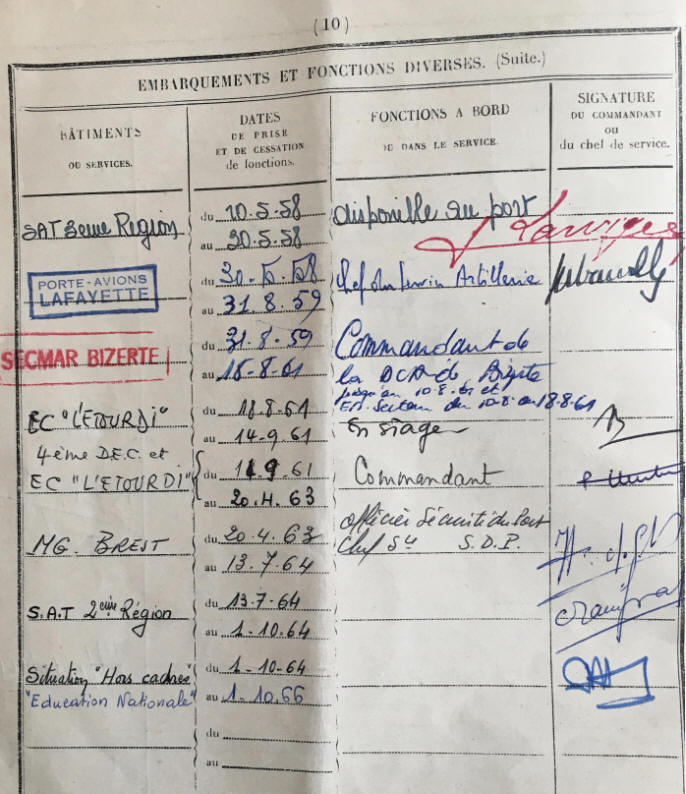 (10)
EMBARQUEMENTS ET FONCTIONS DIVERSES. (Suite.)
BÂTIMENTS
OU SERVICES.
DATES
DE PRISE
ET DE CESSATION
de fonctions.
FONCTIONS A BORD
OU DANS LE SERVICE.
SIGNATURE
DU COMMANDANT
ou
du chef de service.
SAT 3eme Région
du 10-5-58
au 30-5-58
disponible au port
PORTE-AVIONS
LAFAYETTE
du 30-5-58
au 31.8.59
chef du service Artillerie
SECMAR BIZERTE
du 31-8-59
au 18-8-61
Commandant de
la DCA de Bizerte
jusqu'au 10-8-61 et
du 10-8 au 18-8-61
EC "L'ETOURDI"
du 18.8.61
au 14.9.61
En stage
4ème D.E.C. et
EC "L'ETOURDI"
du 14.9.61
au 20.4.63
Commandant
MG. BREST
du 20-4-63
au 13.7.64
officier Sécurité du Port
Chef S.D.P.
S.A.T 2eme Région
du 13-7-64
au 1-10.64
Situation "Hors cadres"
"Education Nationale"
du 1-10-64
au 1-10.66
du
au